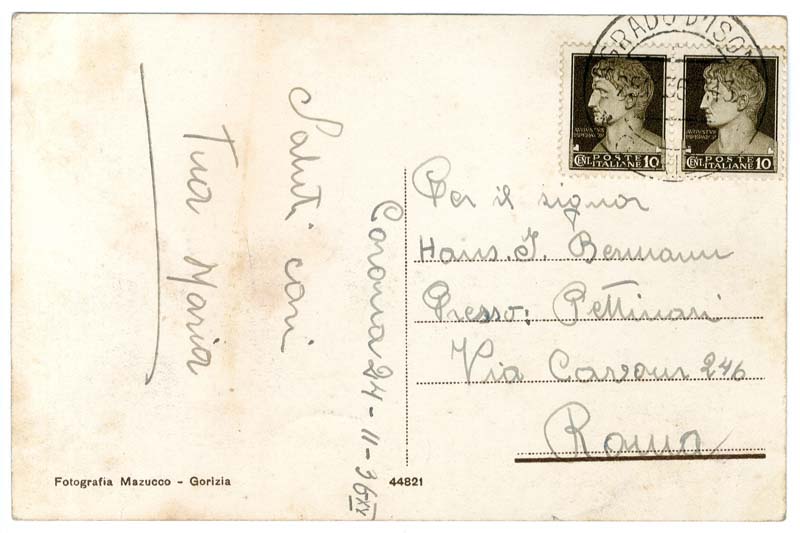 GRADO D'ISON
AVGVSTVS
IMPERATOR
CENT. POSTE ITALIANE 10
AVGVSTVS
IMPERATOR
CENT. POSTE ITALIANE 10
Saluti cari
Tua Maria
24-11-36 XV
Per il signor
Hans. J. Bermann
Presso: Pettinari
Via Cavour 246
Roma
Fotografia Mazucco - Gorizia
44821